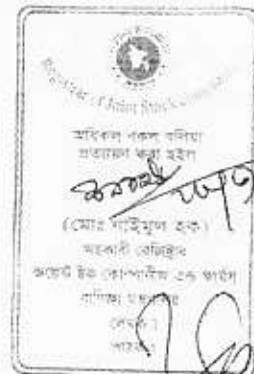 Registrar of Joint Stock
অবিকল নকল বলিয়া
প্রত্যায়ন করা হইল
(মোঃ নাইমুল হক)
সহকারী রেজিষ্ট্রার
জয়েন্ট ষ্টক কোম্পানীজ এন্ড ফার্মস
বাণিজ্য মন্ত্রণালয়
লেখক।
পাঠক।